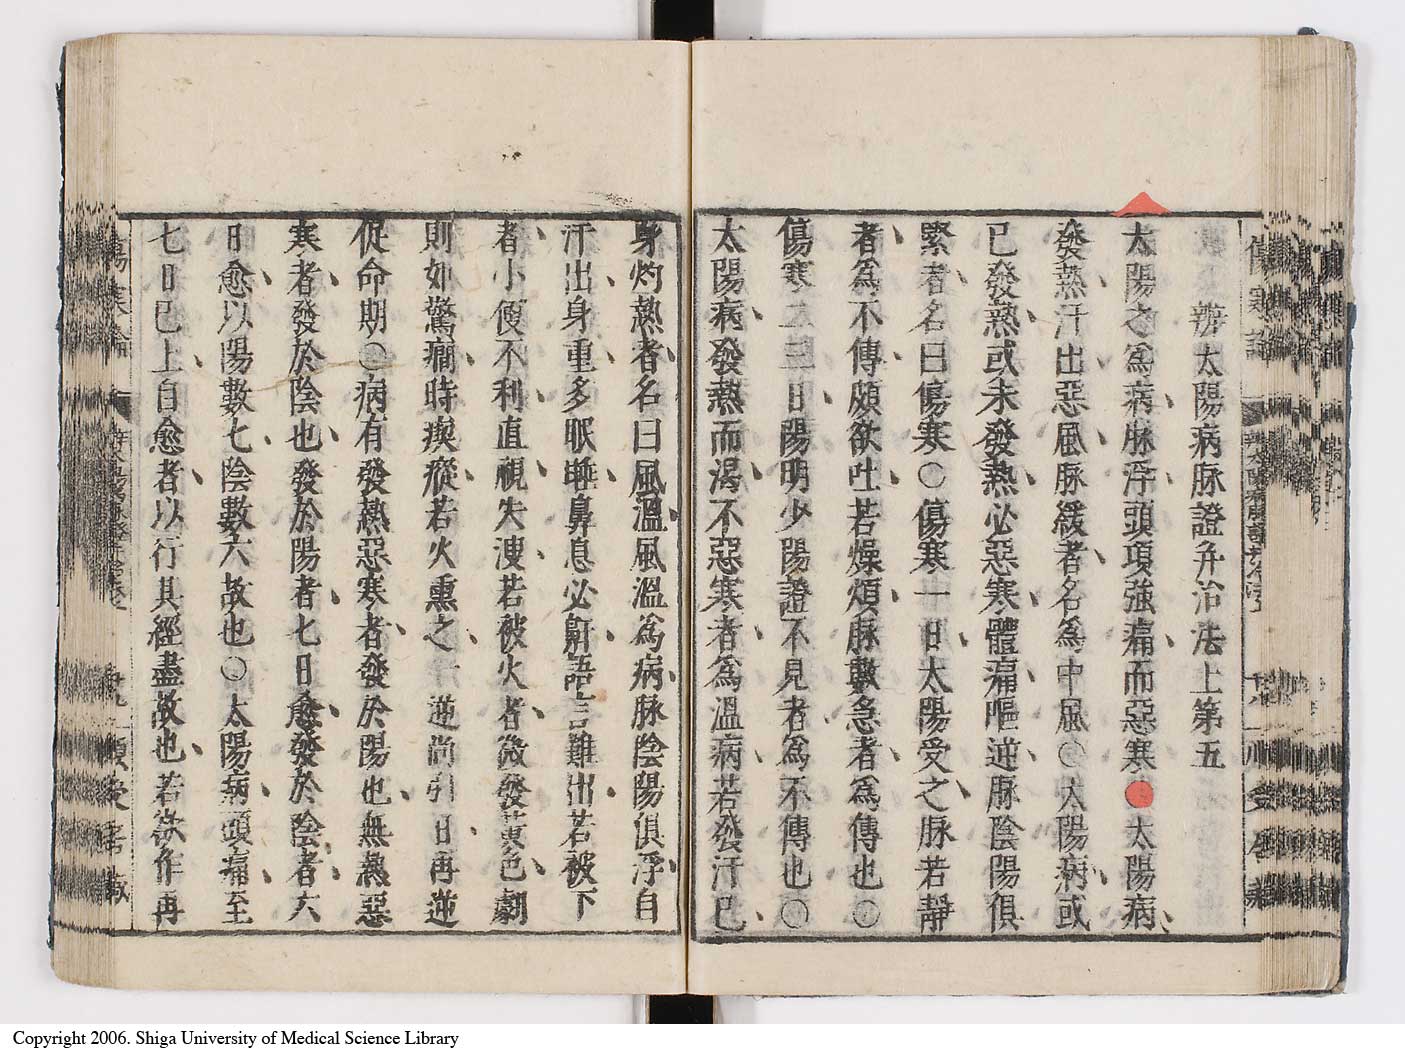 辨太陽病脉證并治法上第五
太陽之爲病脉浮頭項強痛而惡寒○太陽病
發熱汗出惡風脉緩者名爲中風○太陽病或
已發熱或未發熱必惡寒體痛嘔逆脉陰陽俱
緊者名曰傷寒○傷寒一日太陽受之脉若靜
者爲不傳頗欲吐若燥煩脉數急者爲傳也○
傷寒二三日陽明少陽證不見者爲不傳也○
太陽病發熱而渴不惡寒者爲溫病若發汗已
身灼熱者名曰風溫風溫爲病脉陰陽俱浮自
汗出身重多眠睡鼻息必鼾語言難出若被下
者小便不利直視失溲若被火者微發黃色劇
則如驚癇時瘈瘲若火熏之一逆尚引日再逆
促命期○病有發熱惡寒者發於陽也無熱惡
寒者發於陰也發於陽者七日愈發於陰者六
日愈以陽數七陰數六故也○太陽病頭痛至
七日已上自愈者以行其經盡故也若欲作再
傷寒論
Copyright 2006. Shiga University of Medical Science Library